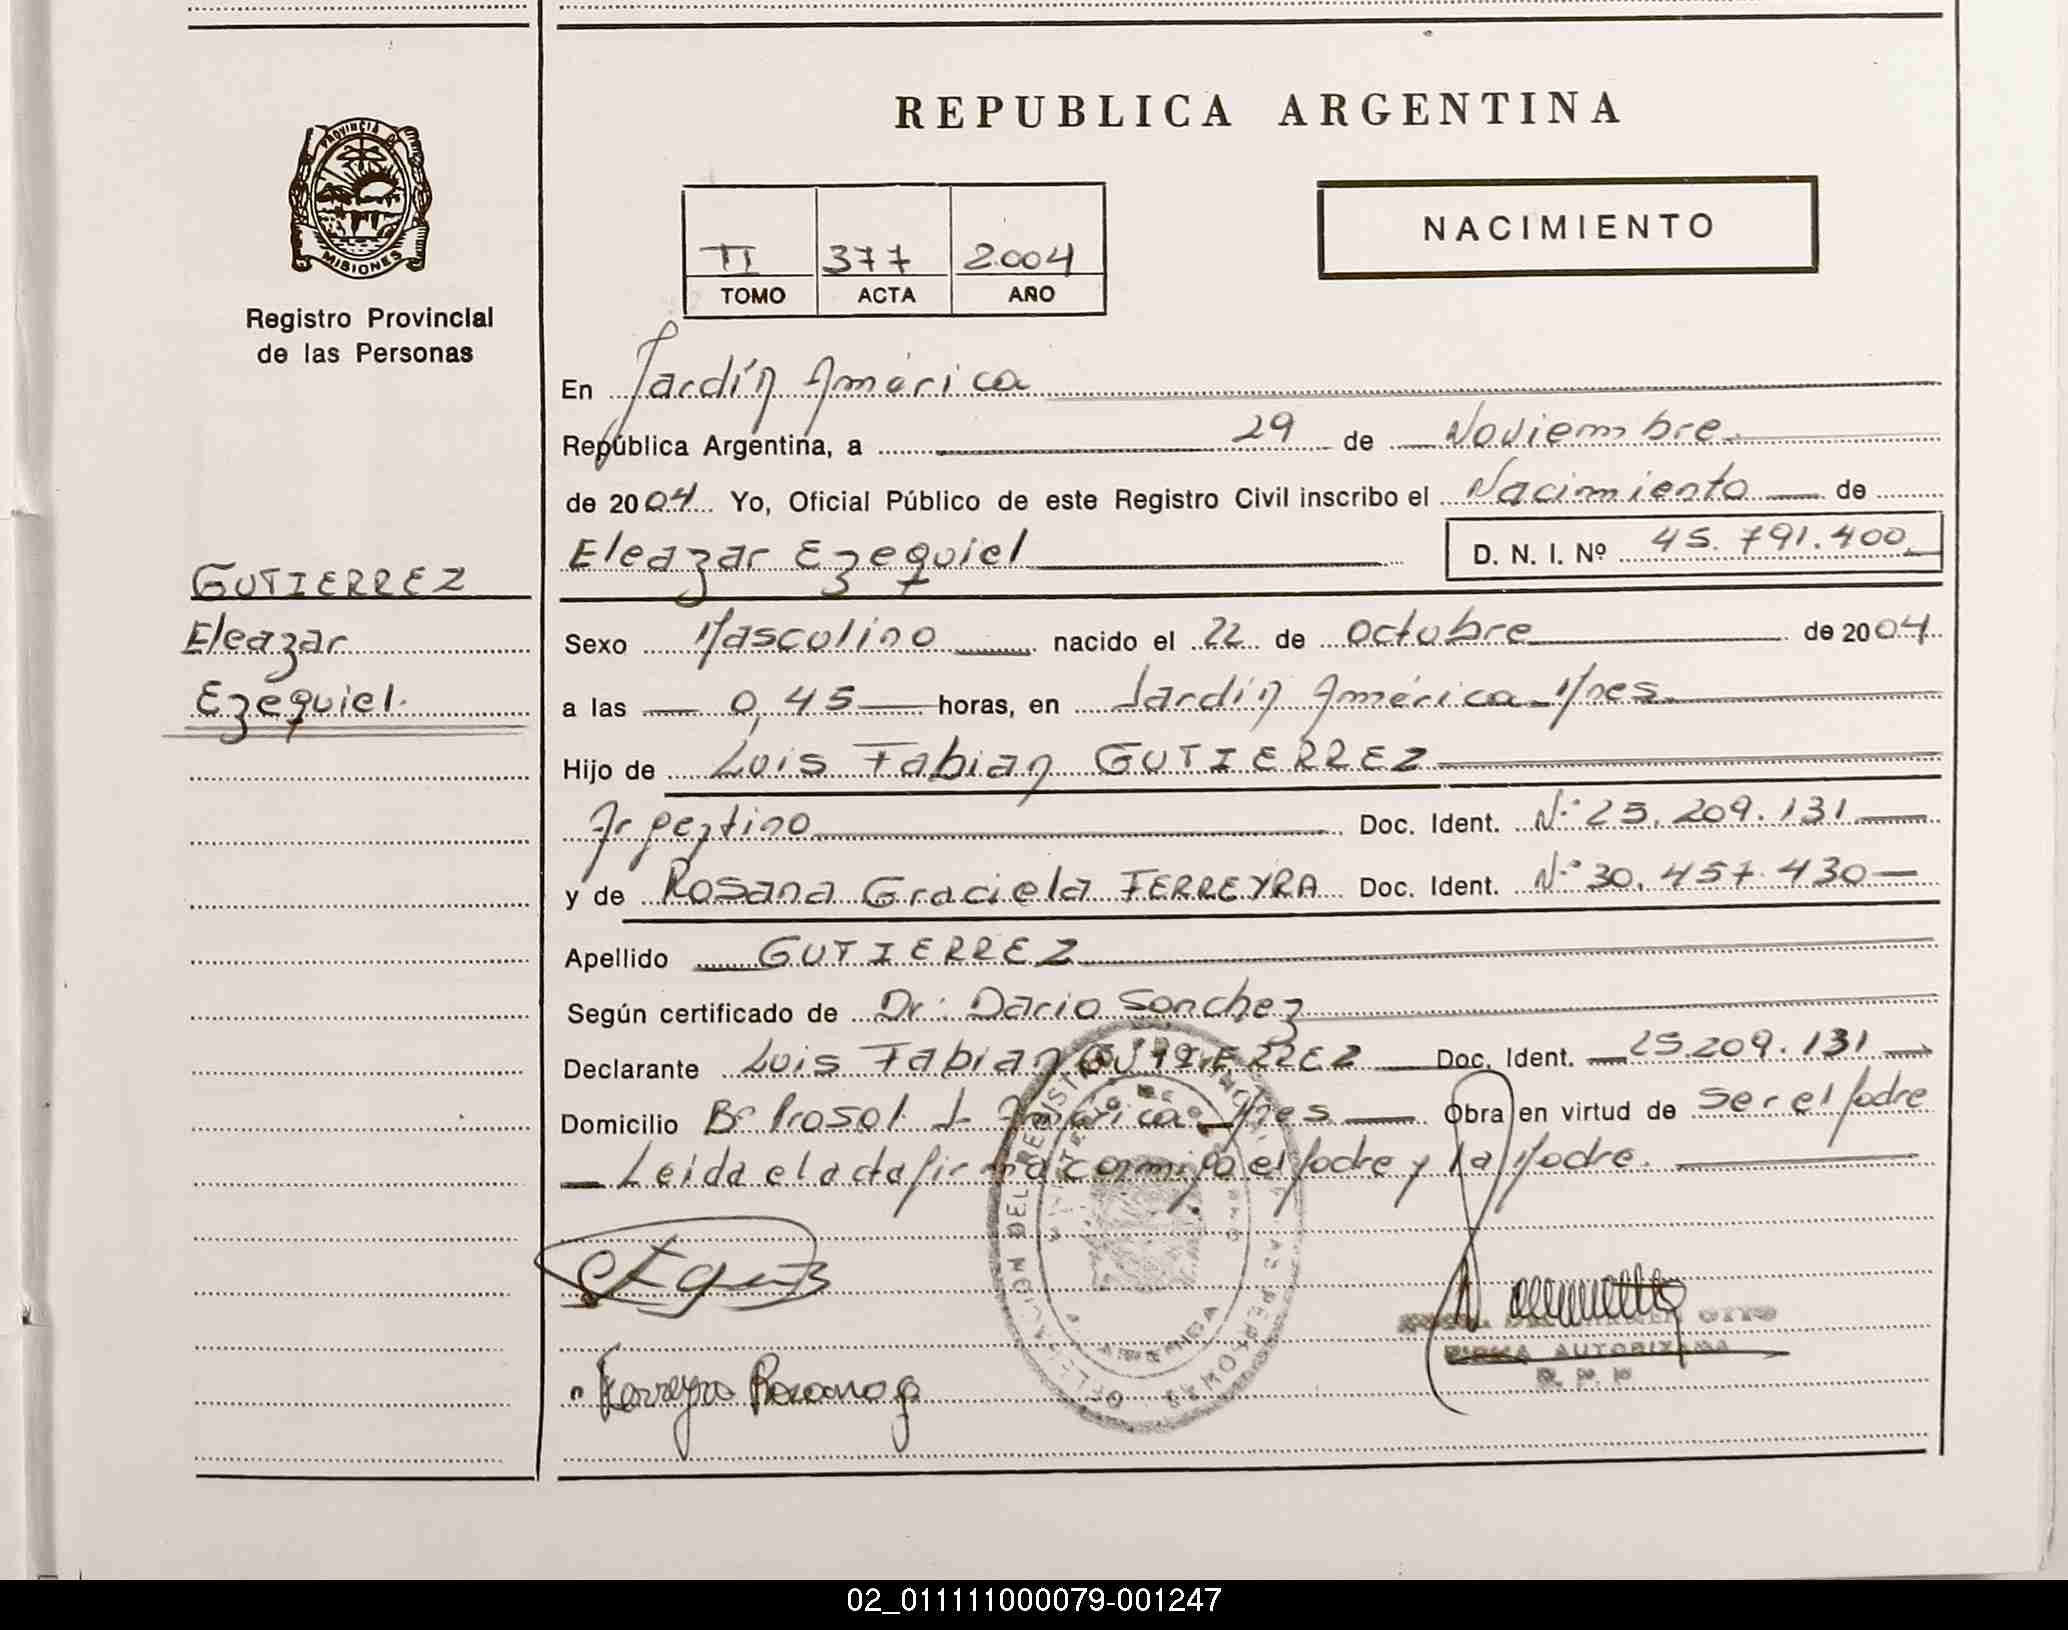 PROVINCIA DE
MISIONES
Registro Provincial
de las Personas
GUTIERREZ
Eleazar
Ezequiel.
REPUBLICA ARGENTINA
II 377 2.004
TOMO ACTA AÑO
NACIMIENTO
En Jardín América
República Argentina, a 29 de Noviembre
de 2004 Yo, Oficial Público de este Registro Civil inscribo el Nacimiento de
Eleazar Ezequiel D. N. I. Nº 45.791.400
Sexo Masculino nacido el 22 de octubre de 2004
a las 0,45 horas, en Jardín América - Mnes.
Hijo de Luis Fabian GUTIERREZ
Argentino Doc. Ident. N.º 25.209.131
y de Rosana Graciela FERREYRA Doc. Ident. N.º 30.457.430
Apellido GUTIERREZ
Según certificado de Dr. Dario Sanchez
Declarante Luis Fabian GUTIERREZ Doc. Ident. 25.209.131
Domicilio Bº Prosol J. América - Mnes Obra en virtud de ser el padre
Leida el acta firma conmigo el padre y la Madre.
Ferreyra Rosana g
FIRMA AUTORIZADA
R. P. P
02_011111000079-001247